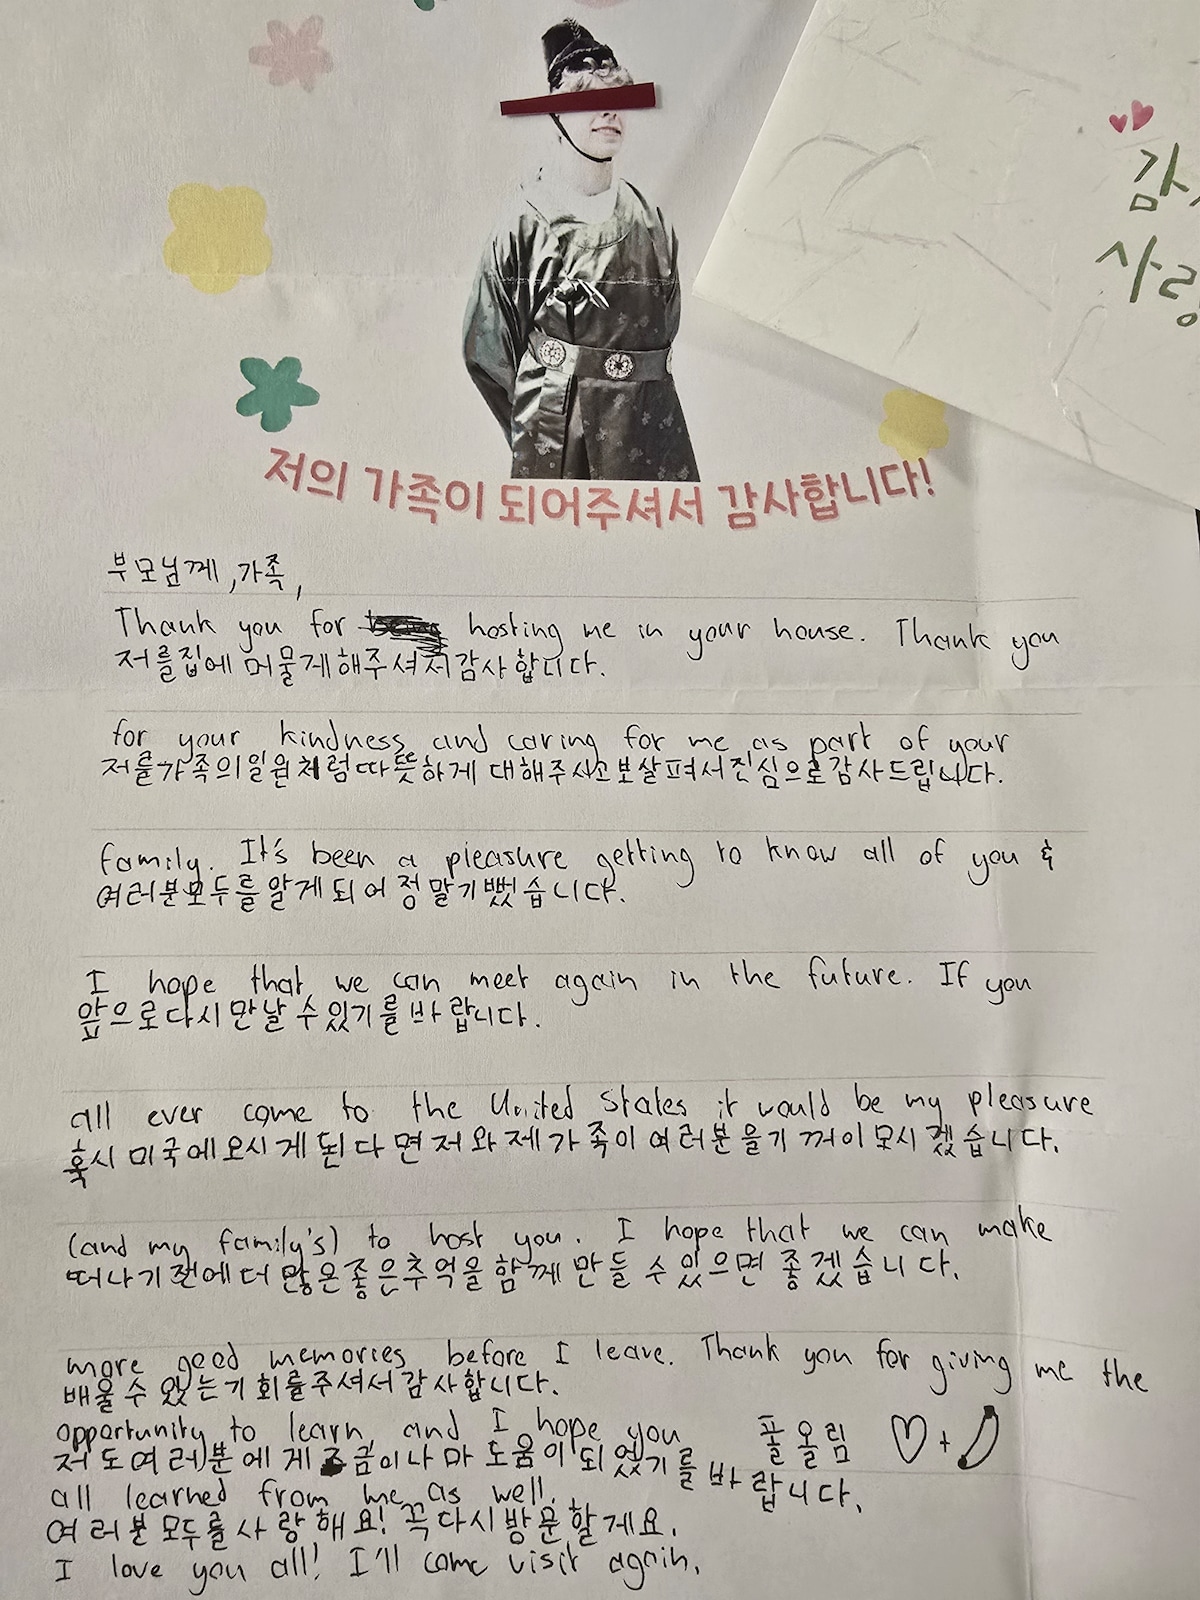 감
사랑
저의 가족이 되어주셔서 감사합니다!
부모님께, 가족,
Thank you for hosting me in your house. Thank you
저를집에 머물게해주셔서감사합니다.
for your kindness and caring for me as part of your
저를가족의일원처럼따뜻하게 대해주시고보살펴서진심으로감사드립니다.
family. It's been a pleasure getting to know all of you &
여러분모두를알게되어정말기뻤습니다.
I hope that we can meet again in the future. If you
앞으로다시만날수있기를바랍니다.
all ever come to the United States it would be my pleasure
혹시미국에오시게된다면저와제가족이여러분을기꺼이모시겠습니다.
(and my family's) to host you. I hope that we can make
떠나기전에더많은좋은추억을함께만들수있으면좋겠습니다.
more good memories before I leave. Thank you for giving me the
배울수있는기회를주셔서감사합니다.
opportunity to learn, and I hope you
폴올림
저도여러분에게조금이나마도움이되었기를바랍니다.
all learned from me as well.
여러분모두를사랑해요! 꼭다시방문할게요.
I love you all! I'll come visit again.